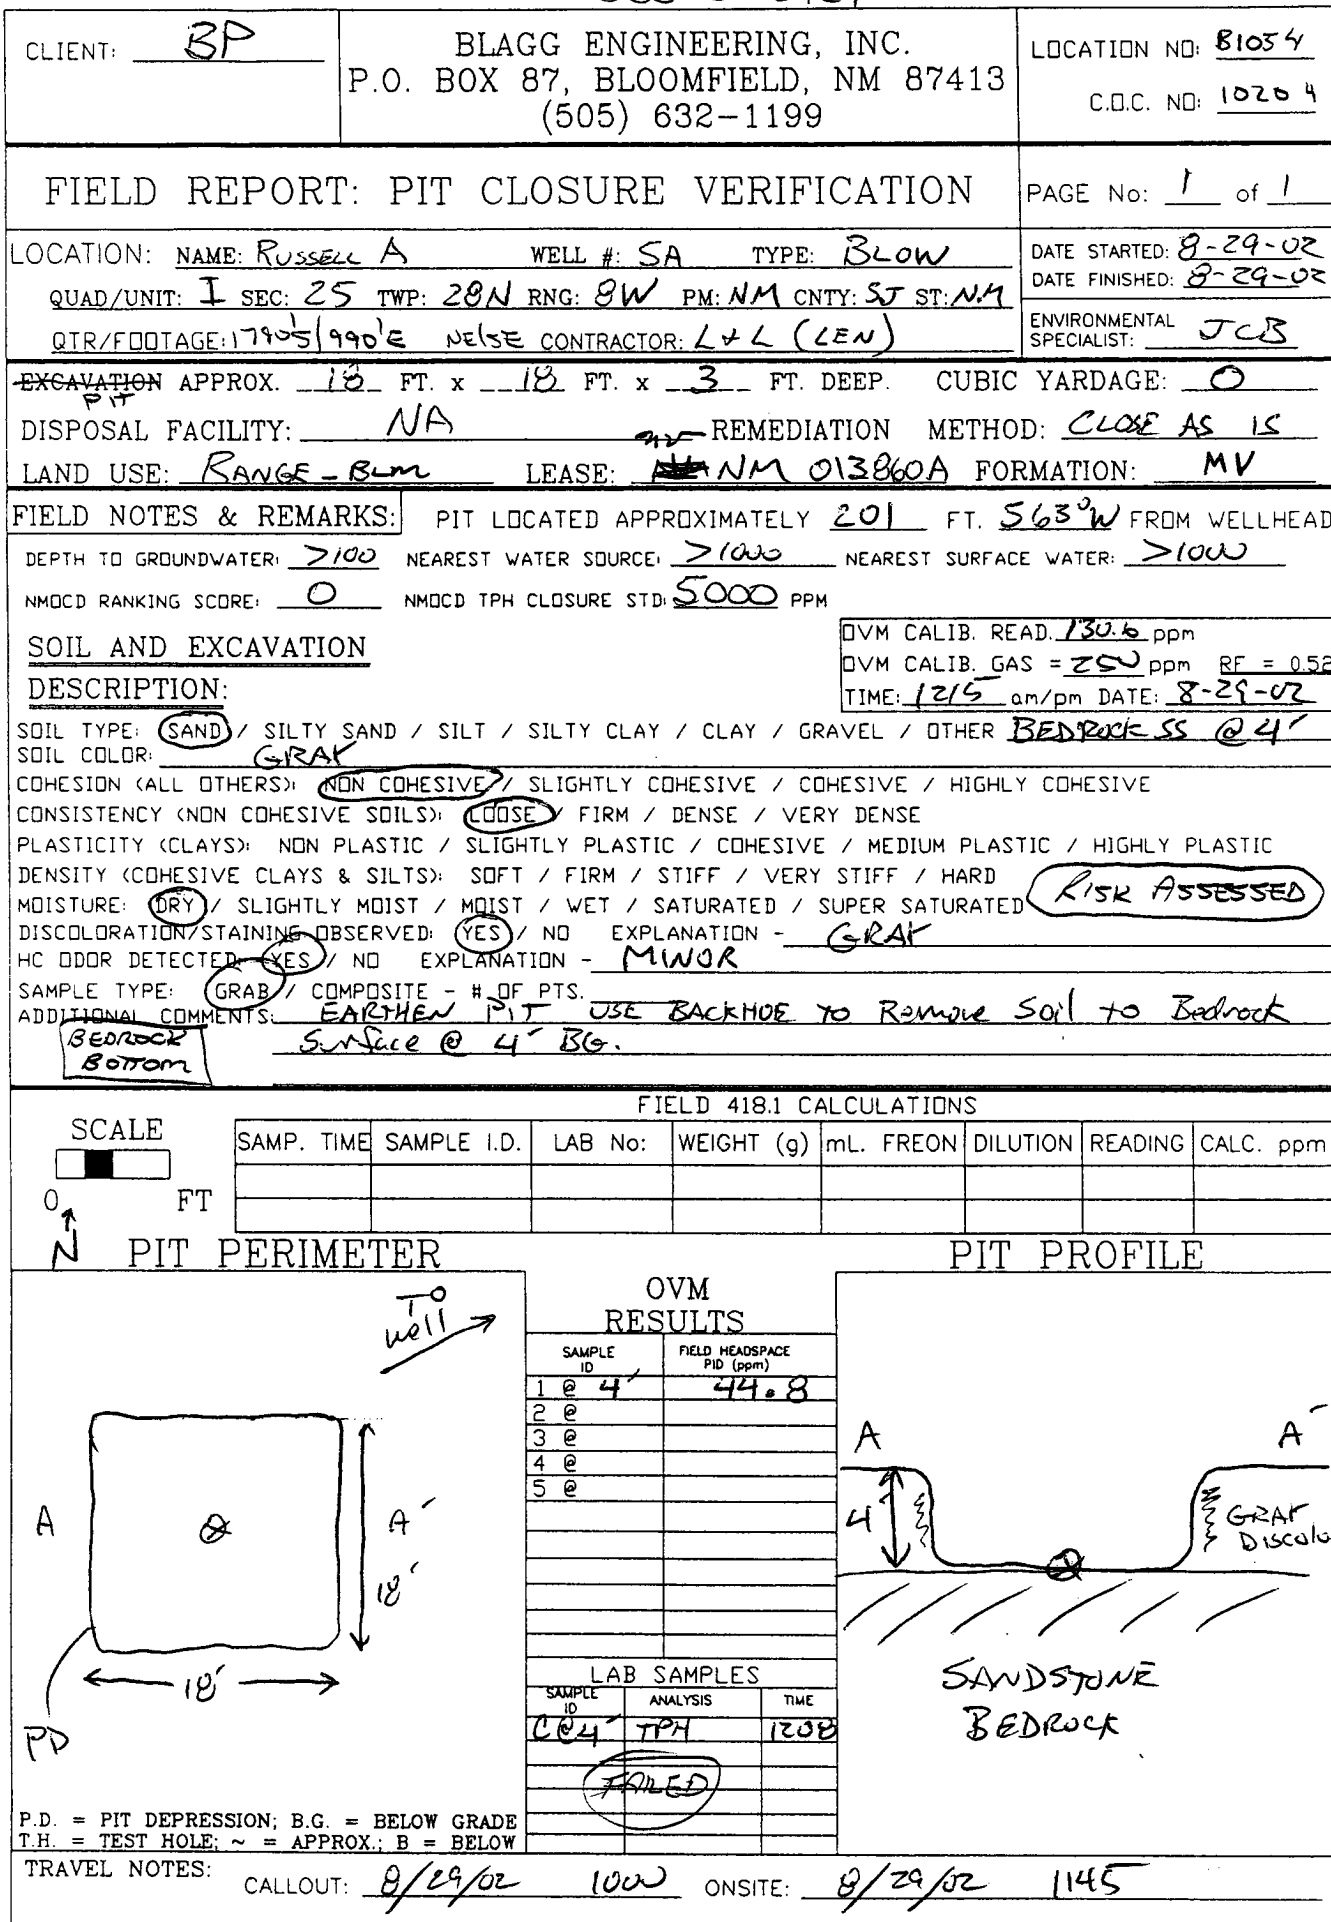 CLIENT: BP
BLAGG ENGINEERING, INC.
P.O. BOX 87, BLOOMFIELD, NM 87413
(505) 632-1199
LOCATION NO: B1054
C.O.C. NO: 10204
FIELD REPORT: PIT CLOSURE VERIFICATION
PAGE No: 1 of 1
LOCATION: NAME: RUSSELL A WELL #: 5A TYPE: BLOW
QUAD/UNIT: I SEC: 25 TWP: 28N RNG: 8W PM: NM CNTY: SJ ST: NM
QTR/FOOTAGE: 1790'S/990'E NE/SE CONTRACTOR: L+L (LEN)
DATE STARTED: 8-29-02
DATE FINISHED: 8-29-02
ENVIRONMENTAL
SPECIALIST: JCB
EXCAVATION APPROX. 18 FT. x 18 FT. x 3 FT. DEEP. CUBIC YARDAGE: 0
PIT
DISPOSAL FACILITY: NA REMEDIATION METHOD: CLOSE AS IS
LAND USE: RANGE - BLM LEASE: NM 013860A FORMATION: MV
FIELD NOTES & REMARKS: PIT LOCATED APPROXIMATELY 201 FT. S63°W FROM WELLHEAD
DEPTH TO GROUNDWATER: >100 NEAREST WATER SOURCE: >1000 NEAREST SURFACE WATER: >1000
NMOCD RANKING SCORE: 0 NMOCD TPH CLOSURE STD: 5000 PPM
SOIL AND EXCAVATION
DESCRIPTION:
OVM CALIB. READ. 130.6 ppm
OVM CALIB. GAS = 250 ppm RF = 0.52
TIME: 1215 am/pm DATE: 8-29-02
SOIL TYPE: SAND / SILTY SAND / SILT / SILTY CLAY / CLAY / GRAVEL / OTHER BEDROCK SS @ 4'
SOIL COLOR: GRAY
COHESION (ALL OTHERS): NON COHESIVE / SLIGHTLY COHESIVE / COHESIVE / HIGHLY COHESIVE
CONSISTENCY (NON COHESIVE SOILS): LOOSE / FIRM / DENSE / VERY DENSE
PLASTICITY (CLAYS): NON PLASTIC / SLIGHTLY PLASTIC / COHESIVE / MEDIUM PLASTIC / HIGHLY PLASTIC
DENSITY (COHESIVE CLAYS & SILTS): SOFT / FIRM / STIFF / VERY STIFF / HARD
RISK ASSESSED
MOISTURE: DRY / SLIGHTLY MOIST / MOIST / WET / SATURATED / SUPER SATURATED
DISCOLORATION/STAINING OBSERVED: YES / NO EXPLANATION - GRAY
HC ODOR DETECTED: YES / NO EXPLANATION - MINOR
SAMPLE TYPE: GRAB / COMPOSITE - # OF PTS.
ADDITIONAL COMMENTS: EARTHEN PIT USE BACKHOE TO Remove Soil to Bedrock
Surface @ 4' BG.
BEDROCK
BOTTOM
FIELD 418.1 CALCULATIONS
SCALE
0 FT
SAMP. TIME SAMPLE I.D. LAB No: WEIGHT (g) mL. FREON DILUTION READING CALC. ppm
N
PIT PERIMETER
PIT PROFILE
TO
well
A
A'
18'
18'
PD
P.D. = PIT DEPRESSION; B.G. = BELOW GRADE
T.H. = TEST HOLE; ~ = APPROX.; B = BELOW
OVM
RESULTS
SAMPLE ID FIELD HEADSPACE PID (ppm)
1 @ 4' 44.8
2 @
3 @
4 @
5 @
LAB SAMPLES
SAMPLE ID ANALYSIS TIME
C@4' TPH 1208
FAILED
A
A'
4'
GRAY
DISCOLO
SANDSTONE
BEDROCK
TRAVEL NOTES: CALLOUT: 8/29/02 1000 ONSITE: 8/29/02 1145